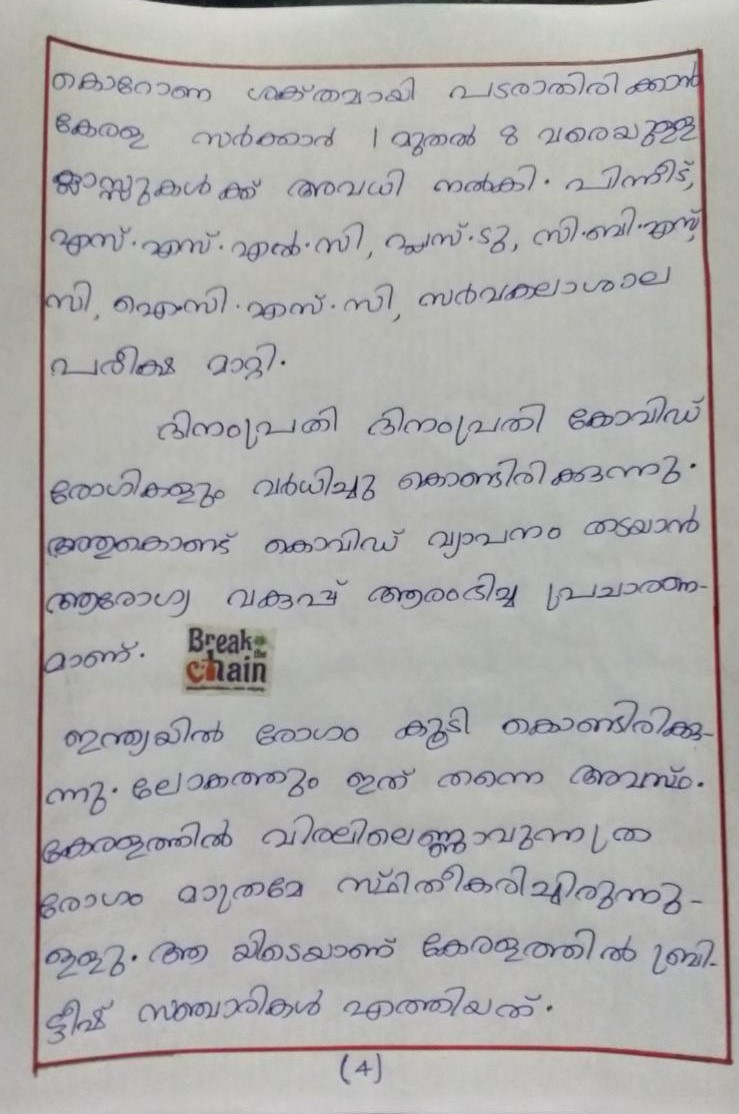 കൊറോണ ശക്തമായി പടരാതിരിക്കാൻ
കേരള സർക്കാർ 1 മുതൽ 8 വരെയുള്ള
ക്ലാസ്സുകൾക്ക് അവധി നൽകി. പിന്നീട്,
എസ്.എസ്.എൽ.സി, പ്ലസ്.ടു, സി.ബി.എസ്,
സി, ഐസി.എസ്.സി, സർവകലാശാല
പരീക്ഷ മാറ്റി.
ദിനംപ്രതി ദിനംപ്രതി കോവിഡ്
രോഗികളും വർധിച്ചു കൊണ്ടിരിക്കുന്നു.
അതുകൊണ്ട് കൊവിഡ് വ്യാപനം തടയാൻ
ആരോഗ്യ വകുപ്പ് ആരംഭിച്ച പ്രചാരണ-
മാണ്. Break the chain
ഇന്ത്യയിൽ രോഗം കൂടി കൊണ്ടിരിക്കു-
ന്നു. ലോകത്തും ഇത് തന്നെ അവസ്ഥ.
കേരളത്തിൽ വിരലിലെണ്ണാവുന്നത്ര
രോഗം മാത്രമേ സ്ഥിതീകരിച്ചിരുന്നു-
ള്ളു. ആ യിടെയാണ് കേരളത്തിൽ ബ്രി-
ട്ടീഷ് സഞ്ചാരികൾ എത്തിയത്.
(4)